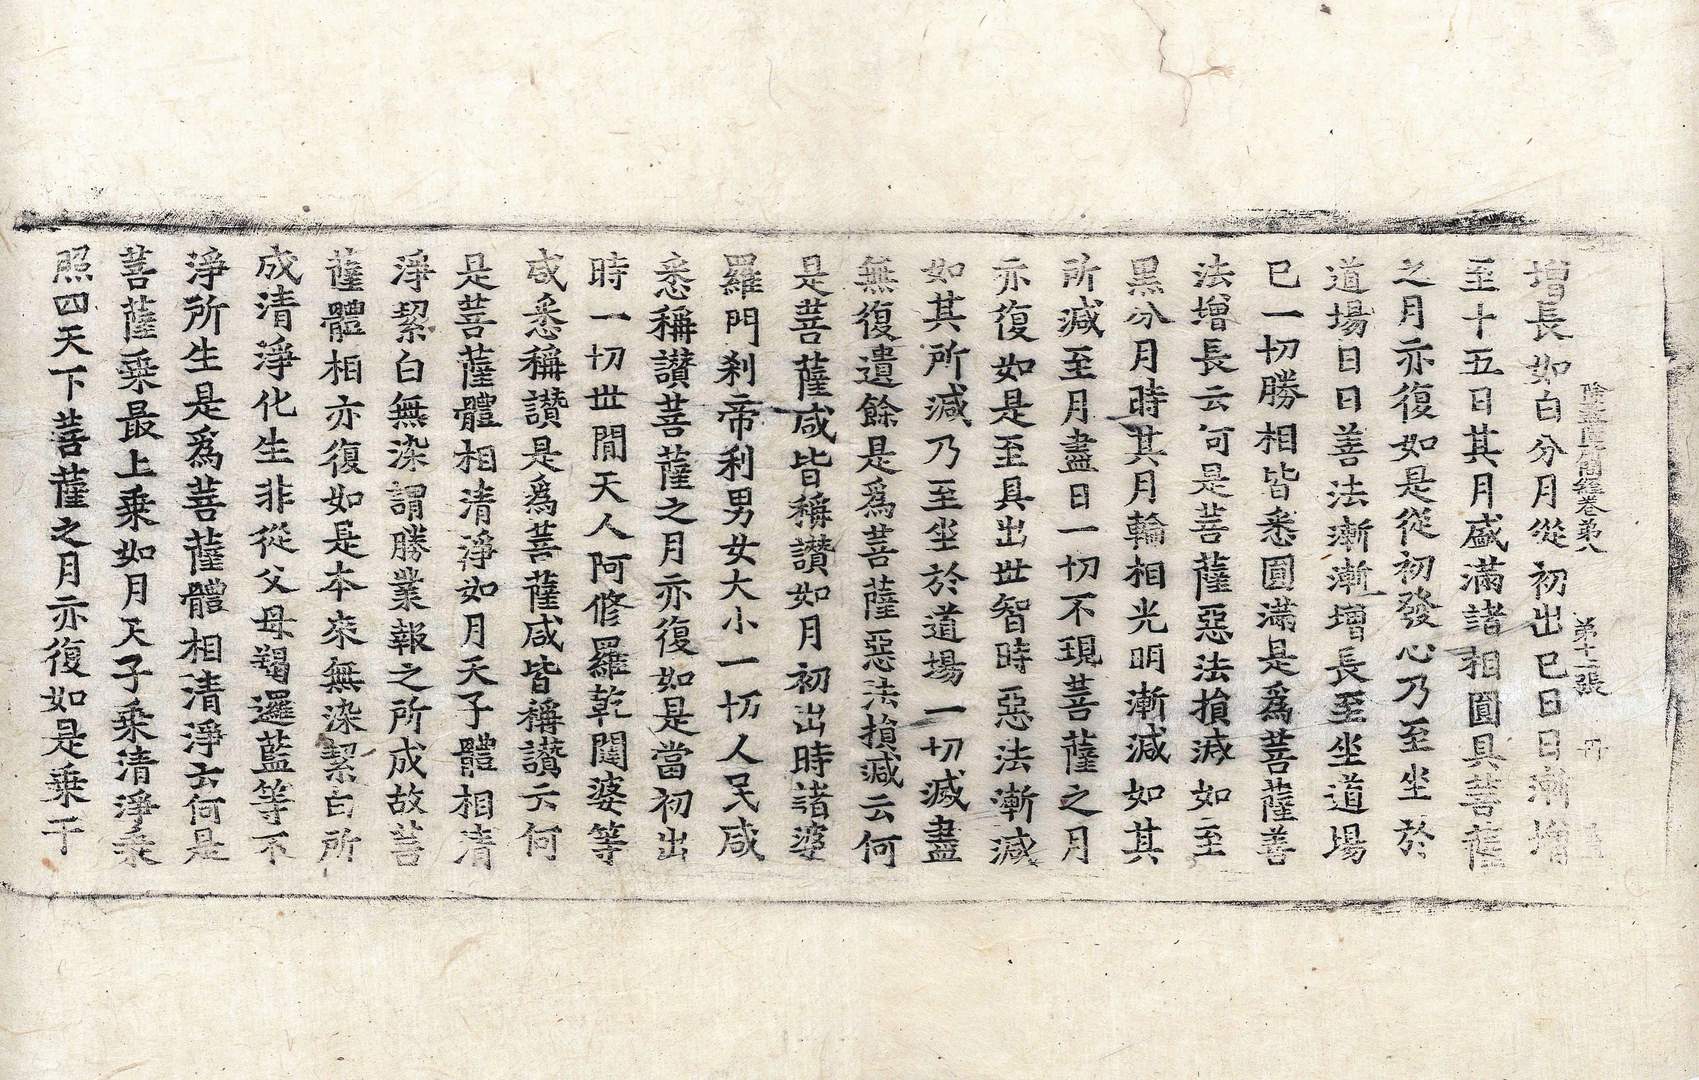 除蓋障所問經卷第八　第十二張
增長如白分月從初出已日日漸增
至十五日其月盛滿諸相圓具菩薩
之月亦復如是從初發心乃至坐於
道場日日善法漸漸增長至坐道場
已一切勝相皆悉圓滿是爲菩薩善
法增長云何是菩薩惡法損減如至
黑分月時其月輪相光明漸減如其
所減至月盡日一切不現菩薩之月
亦復如是至具出世智時惡法漸減
如其所減乃至坐於道場一切減盡
無復遺餘是爲菩薩惡法損減云何
是菩薩咸皆稱讚如月初出時諸婆
羅門剎帝利男女大小一切人民咸
悉稱讚菩薩之月亦復如是當初出
時一切世間天人阿修羅乾闥婆等
咸悉稱讚是爲菩薩咸皆稱讚云何
是菩薩體相清淨如月天子體相清
淨絜白無染謂勝業報之所成故菩
薩體相亦復如是本來無染絜白所
成清淨化生非從父母羯邏藍等不
淨所生是爲菩薩體相清淨云何是
菩薩乘最上乘如月天子乘清淨乘
照四天下菩薩之月亦復如是乘于